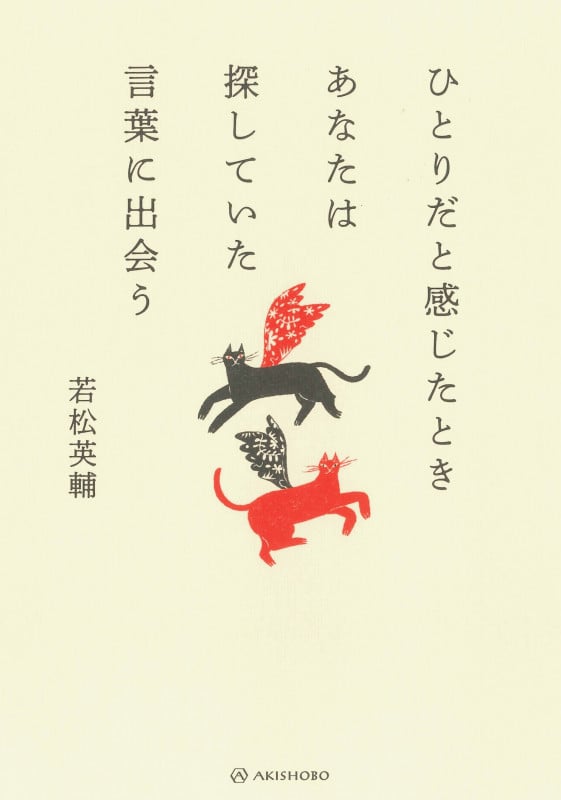 ひとりだと感じたとき
あなたは
探していた
言葉に出会う
若松英輔
AKISHOBO